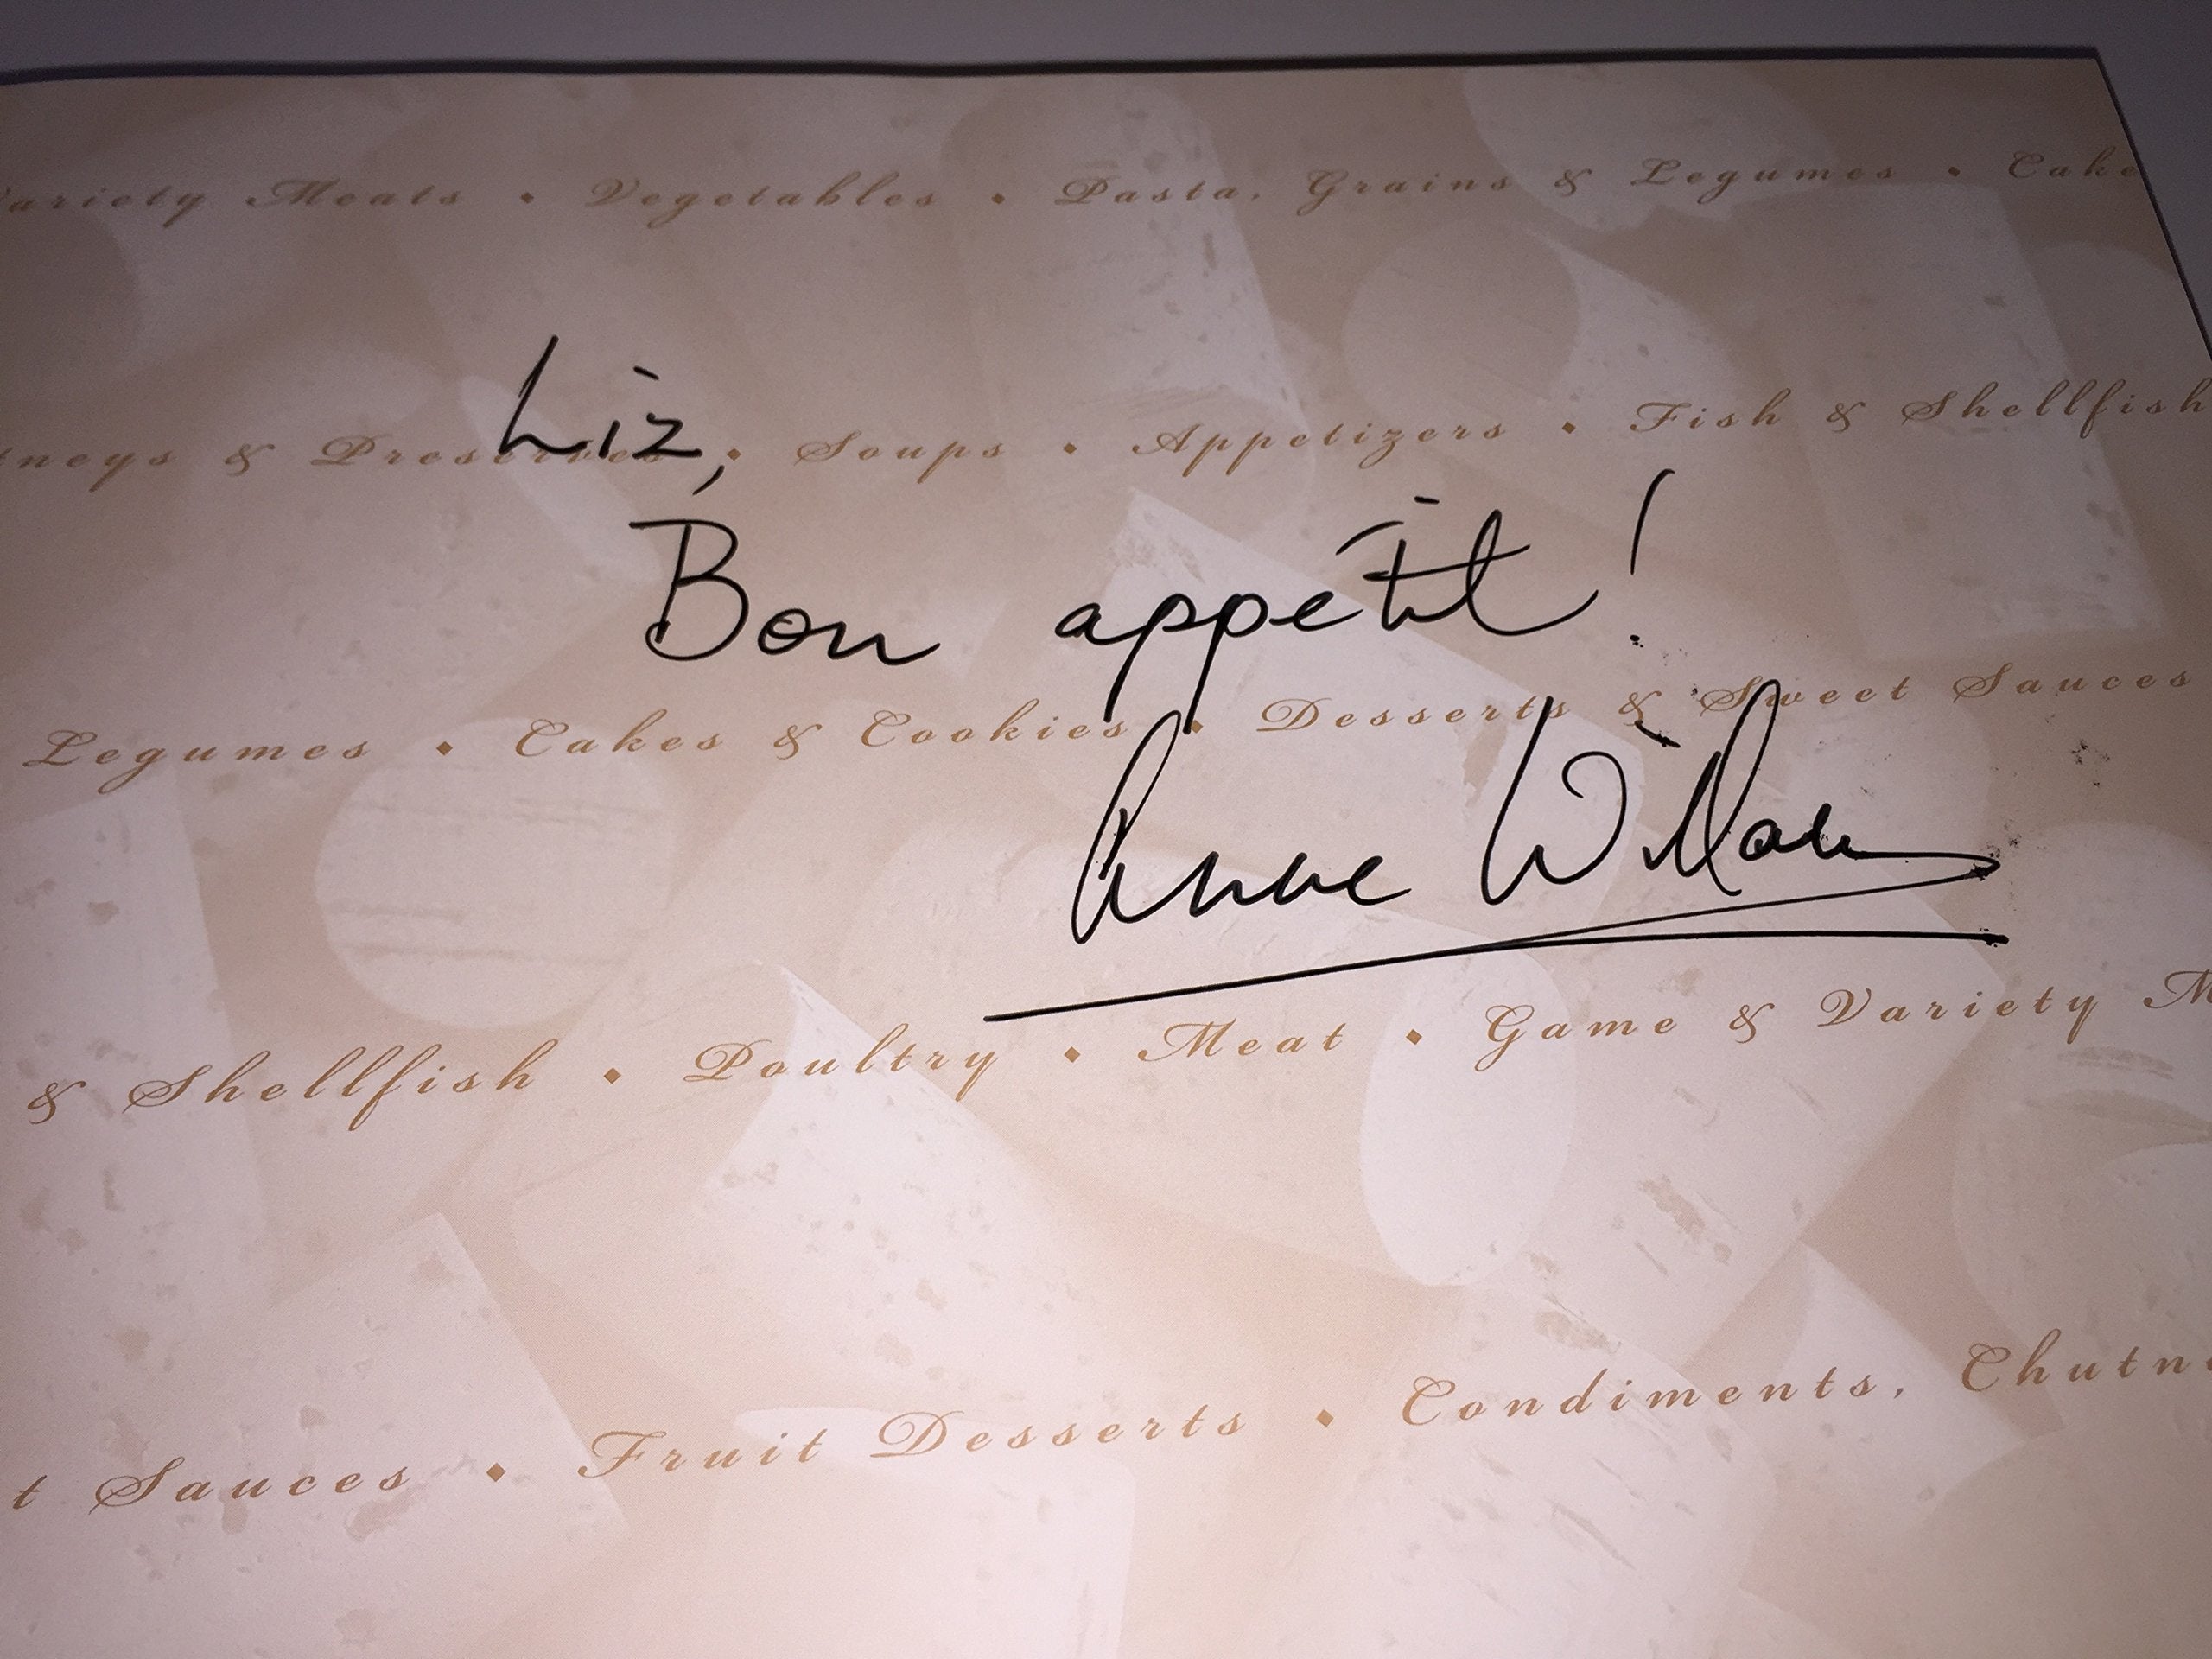 Variety Meats • Vegetables • Pasta, Grains & Legumes • Cake
Liz,
tneys & Preserves • Soups • Appetizers • Fish & Shellfish
Bon appétit!
Legumes • Cakes & Cookies • Desserts & Sweet Sauces
Anne Willan
& Shellfish • Poultry • Meat • Game & Variety M
t Sauces • Fruit Desserts • Condiments, Chutne